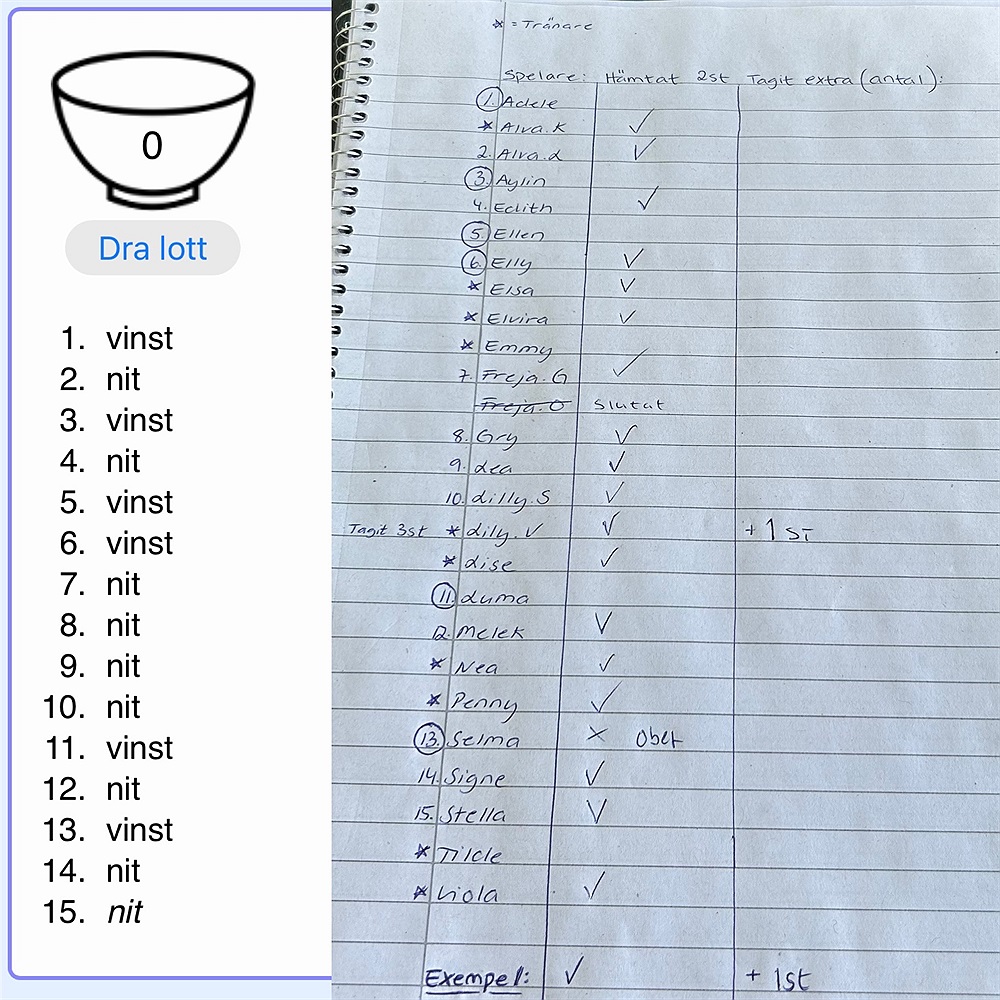 0
Dra lott
1. vinst
2. nit
3. vinst
4. nit
5. vinst
6. vinst
7. nit
8. nit
9. nit
10. nit
11. vinst
12. nit
13. vinst
14. nit
15. nit
* = Tränare
Spelare: Hämtat 2st Tagit extra (antal):
1. Adele
* Alva.K ✓
2. Alva.L ✓
3. Aylin
4. Edith ✓
5. Ellen
6. Elly ✓
* Elsa ✓
* Elvira ✓
* Emmy
7. Freja.G ✓
Freja.O Slutat
8. Gry ✓
9. Lea ✓
10. Lilly.S ✓
Tagit 3st * Lily.V ✓ + 1 ST
* Lise ✓
11. Luma
12. Melek ✓
* Nea ✓
* Penny ✓
13. Selma ×
14. Signe ✓
15. Stella ✓
* Tilde
* Viola ✓
Exempel: ✓ + 1st